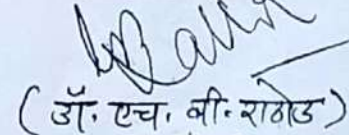 (डॉ. एच. बी. राठोड)